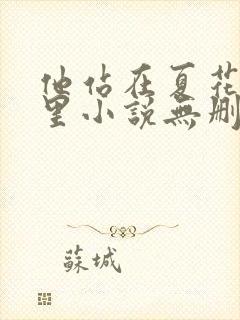 他站在夏花
里小說無刪
蘇城